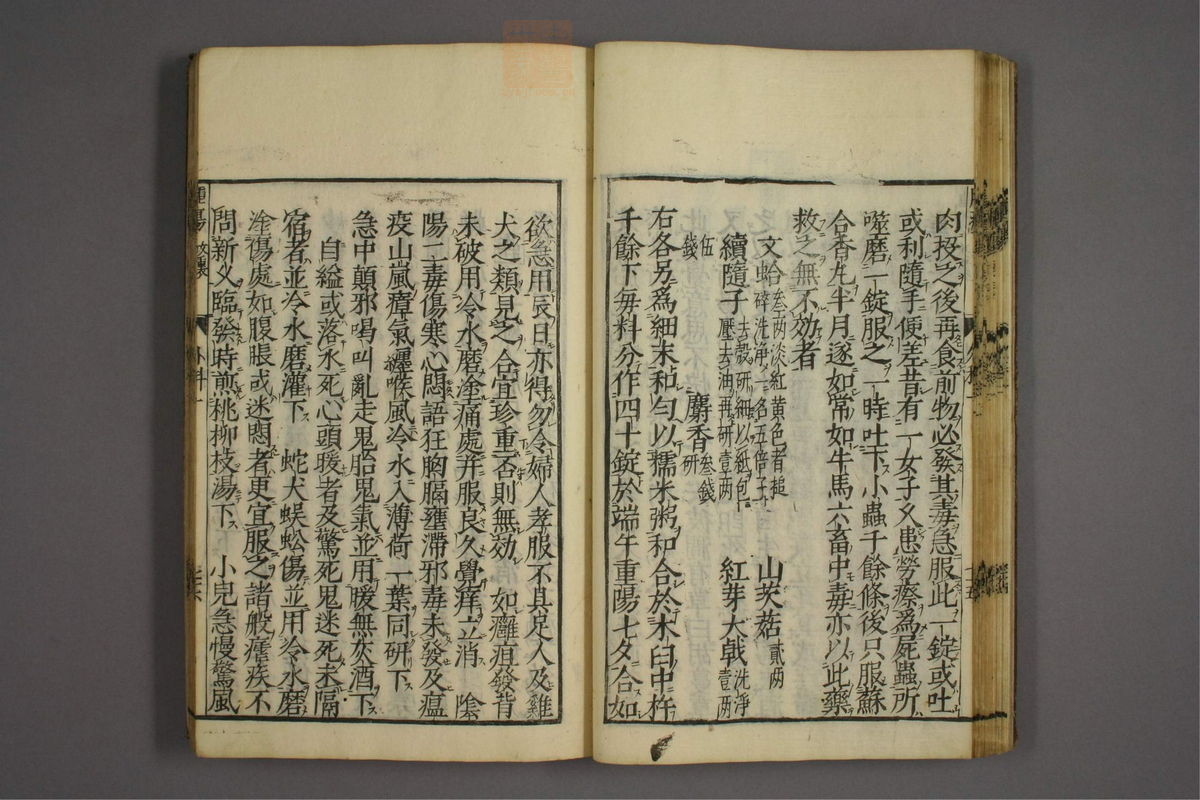 肉投之後再食前物必發其毒急服此一錠或吐
或利隨手便差昔有一女子久患勞瘵為屍蟲所
噬磨一錠服之一時吐下小蟲千餘條後只服蘇
合香丸半月遂如常如牛馬六畜中毒亦以此藥
救之無不効者
文蛤 叁两淡紅黄色者搥碎洗淨一名五倍子 山茨菇 貳两
續隨子 去殼研細以紙包壓去油再研壹两 紅芽大戟 洗淨壹两伍錢
麝香 叁錢研
右各另為細末和勻以糯米粥和合於木臼中杵
千餘下毎料分作四十錠於端午重陽七夕合如
欲急用辰日亦得勿令婦人孝服不具足人及雞
犬之類見之合宜珍重否則無効 如癰疽發背
未破用冷水磨塗痛處并服良久覺痒立消 陰
陽二毒傷寒心悶語狂胸膈壅滯邪毒未發及瘟
疫山嵐瘴氣纒喉風冷水入薄荷一葉同研下
急中顛邪喝叫亂走鬼胎鬼氣並用暖無灰酒下
自縊或落水死心頭暖者及驚死鬼迷死未隔
宿者並冷水磨灌下 蛇犬蜈蚣傷並用冷水磨
塗傷處如腹脹或迷悶者更宜服之諸般瘧疾不
問新久臨發時煎桃柳枝湯下 小兒急慢驚風